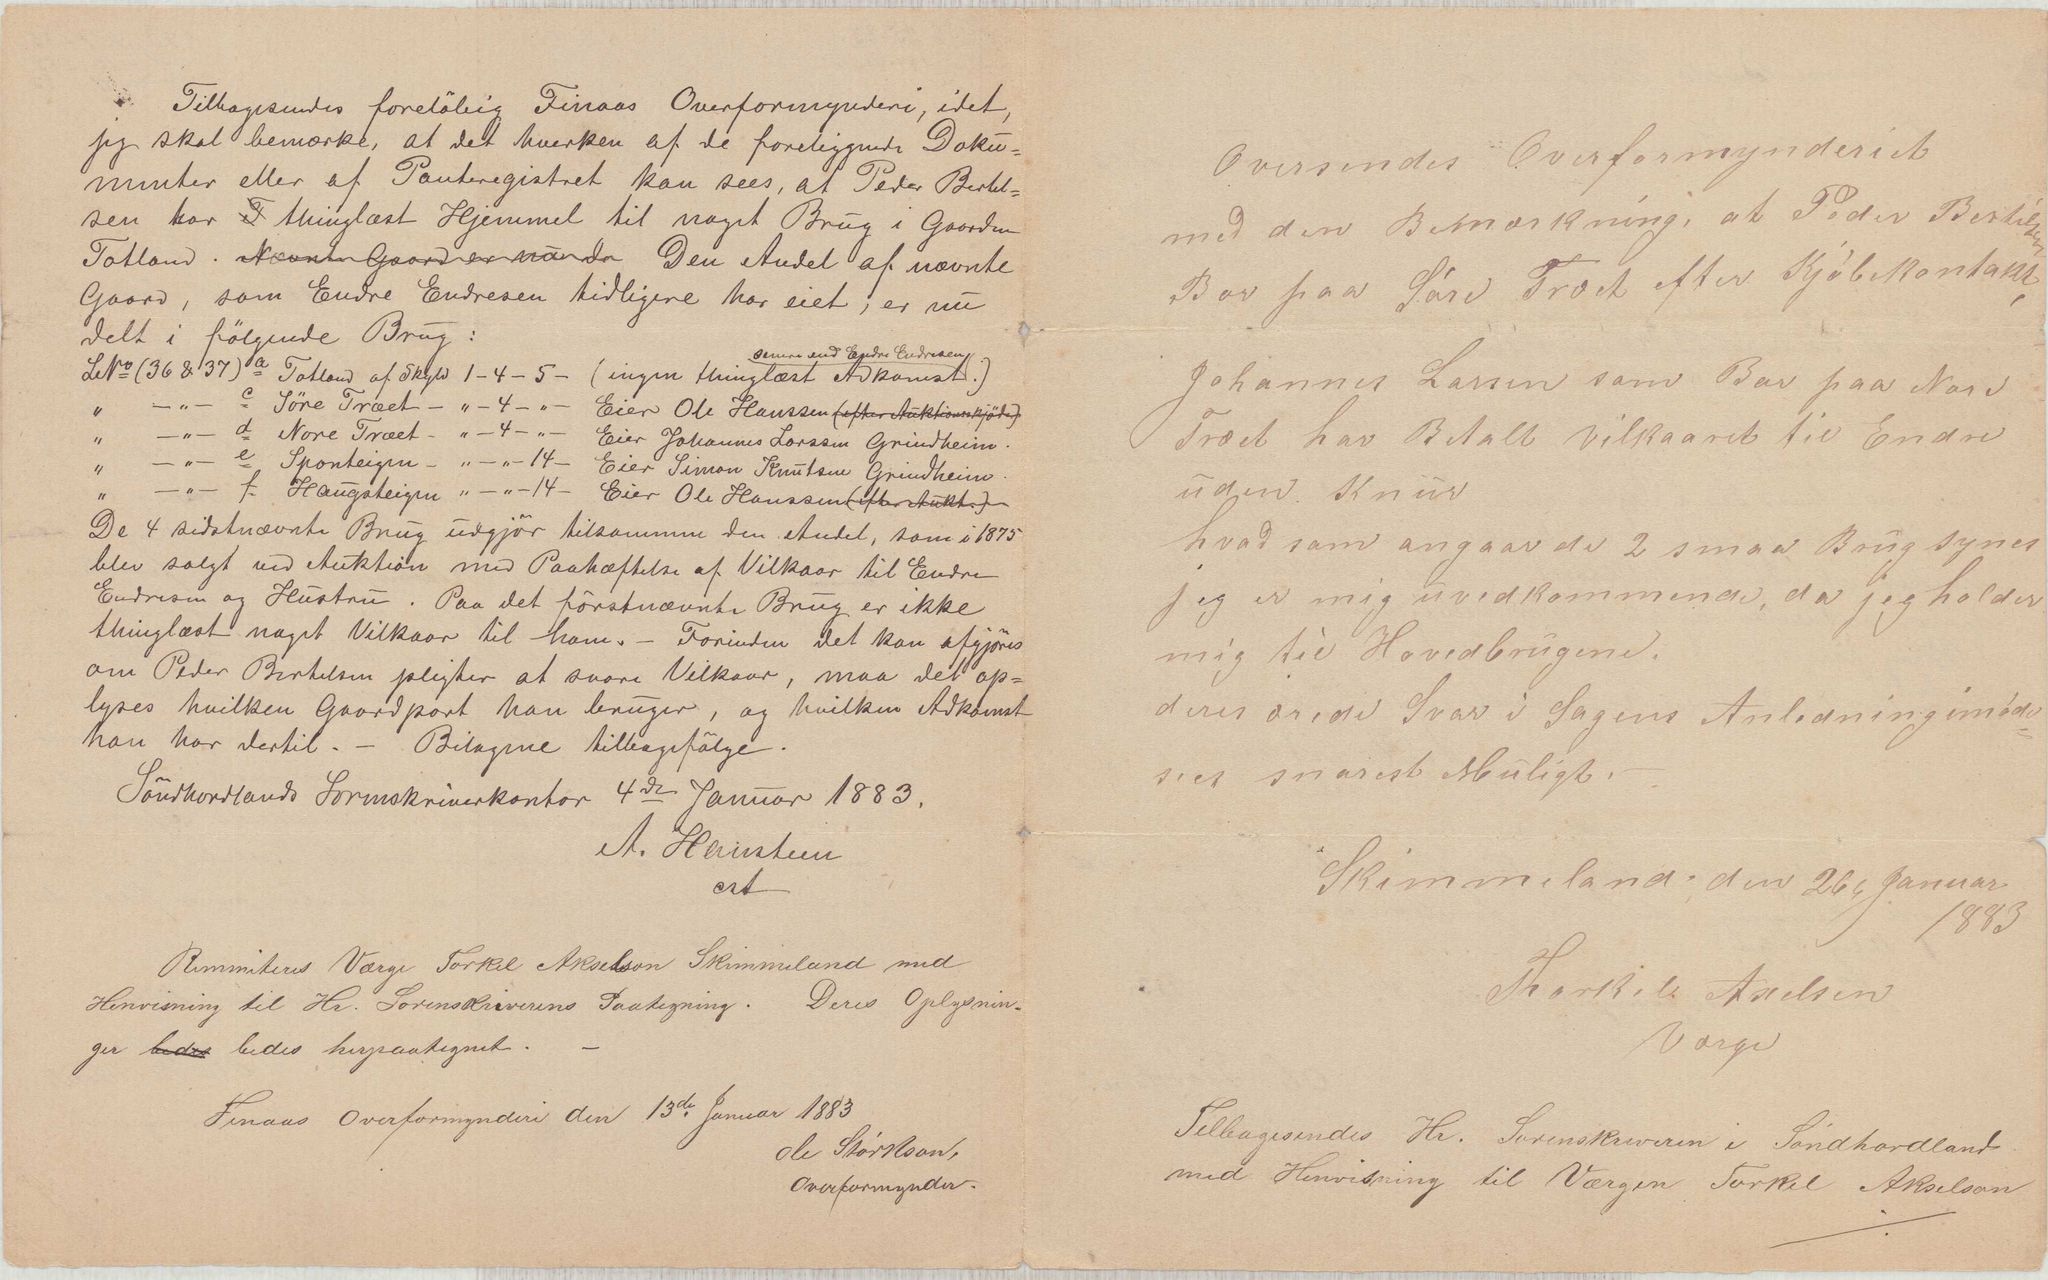 Tilbagesendes foreløbig Finaas Overformynderi, idet,
jeg skal bemærke, at det hverken af de foreliggende Doku=
menter eller af Panteregistret kan sees, at Peder Bertel=
sen har T thinglæst Hjemmel til noget Brug i Gaarden
Totland. Nævnte Gaard er nu de Den Andel af nævnte
Gaard, som Endre Endresen tidligere har eiet, er nu
delt i følgende Brug:
senere end Endre Endresen
LNo (36 & 37) a Totland af Skyld 1-4-5- (ingen thinglæst Adkomst.)
" -"- c Søre Træet - "-4-"- Eier Ole Hanssen (efter Auktionsskjøde)
" -"- d Nore Træet - "-4-"- Eier Johannes Larssen Grindheim.
" -"- e Sponteigen - "-"-14- Eier Simon Knutsen Grindheim.
" -"- f Haugsteigen "-"-14- Eier Ole Hanssen (efter Aukt.)
De 4 sidstnævnte Brug udgjør tilsammen den Andel, som i 1875
blev solgt ved Auktion med Paahæftelse af Vilkaar til Endre
Endresen og Hustru. Paa det førstnævnte Brug er ikke
thinglæst noget Vilkaar til ham. - Forinden det kan afgjøres
om Peder Bertelsen pligter at svare Vilkaar, maa det op=
lyses hvilken Gaardpart han bruger, og hvilken Adkomst
han har dertil. - Bilagene tilbagefølge.
Söndhordlands Sorenskriverkontor 4de Januar 1883.
A. Hansteen
cst
Remmiteres Værge Torkel Akselson Skimmeland med
Henvisning til Hr. Sorenskriverens Paategning. Deres Oplysnin-
ger bedes bedes herpaategnet. -
Finaas Overformynderi den 13de Januar 1883
Ole Størkson,
Overformynder.
Oversendes Overformynderiet
med den Bemærkning, at Peder Bertilsen
Bor paa Söre Træet efter Kjöbekontakt,
Johannes Larsen som Bor paa Nore
Træet har Betalt Vilkaaret til Endre
uden Knur
hvad som angaar de 2 smaa Brug synes
jeg er mig uvedkommende, da jeg holder
mig til Hovedbrugene.
deres ærede Svar i Sagens Anledning imöde
sees snarest Muligt. -
Skimmeland, den 26 Januar
1883
Thorkild Axelsen
Værge
Tilbagesendes Hr. Sorenskriveren i Söndhordland
med Henvisning til Værgen Torkel Akselson